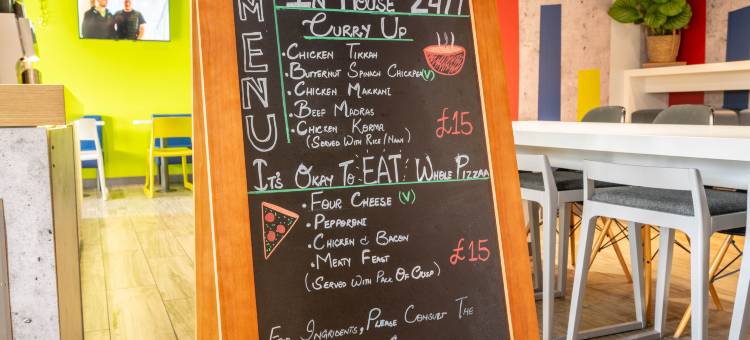 MENU
IN HOUSE 24/7
CURRY UP
• CHICKEN TIKKAH
• BUTTERNUT SPINACH CHICKPEA (V)
• CHICKEN MAKKANI
• BEEF MADRAS
• CHICKEN KORMA
(SERVED WITH RICE/NAAN)
£15
IT'S OKAY TO EAT WHOLE PIZZAA
• FOUR CHEESE (V)
• PEPPERONI
• CHICKEN & BACON
• MEATY FEAST
(SERVED WITH PACK OF CRISP)
£15
FOR INGRIDENTS, PLEASE CONSULT THE